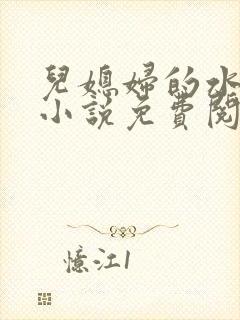 兒媳婦的水
小說免費閱
憶江1